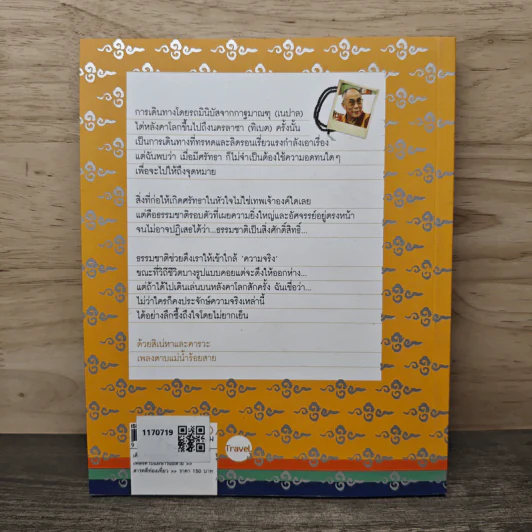 การเดินทางโดยรถมินิบัสจากกาฐมาณฑุ (เนปาล)
ไต่หลังคาโลกขึ้นไปถึงนครลาซา (ทิเบต) ครั้งนั้น
เป็นการเดินทางที่ทรหดและลิดรอนเรี่ยวแรงกำลังเอาเรื่อง
แต่ฉันพบว่า เมื่อมีศรัทธา ก็ไม่จำเป็นต้องใช้ความอดทนใดๆ
เพื่อจะไปให้ถึงจุดหมาย
สิ่งที่ก่อให้เกิดศรัทธาในหัวใจไม่ใช่เทพเจ้าองค์ใดเลย
แต่คือธรรมชาติรอบตัวที่เผยความยิ่งใหญ่และอัศจรรย์อยู่ตรงหน้า
จนไม่อาจปฏิเสธได้ว่า...ธรรมชาติเป็นสิ่งศักดิ์สิทธิ์...
ธรรมชาติช่วยดึงเราให้เข้าใกล้ 'ความจริง'
ขณะที่วิถีชีวิตบางรูปแบบคอยแต่จะดึงให้ออกห่าง...
แต่ถ้าได้ไปเดินเล่นบนหลังคาโลกสักครั้ง ฉันเชื่อว่า...
ไม่ว่าใครก็คงประจักษ์ความจริงเหล่านี้
ได้อย่างลึกซึ้งถึงใจโดยไม่ยากเย็น
ด้วยสิเน่หาและคารวะ
เพลงดาบแม่น้ำร้อยสาย
1170719
Travel
เพลงดาบแม่น้ำร้อยสาย >>
สารคดีท่องเที่ยว >> ราคา 150 บาท